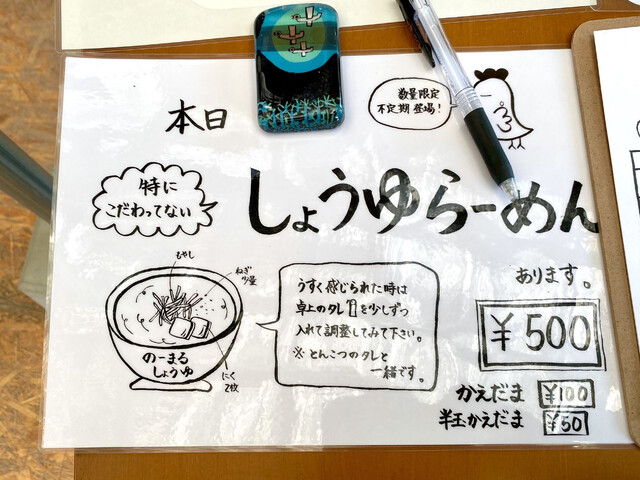 数量限定
不定期登場!
本日
特に
こだわってない
しょうゆらーめん
あります。
¥500
もやし
ねぎ
少量
のーまる
しょうゆ
にく
2枚
うすく感じられた時は
卓上のタレを少しずつ
入れて調整してみて下さい。
※とんこつのタレと
一緒です。
かえだま ¥100
半玉かえだま ¥50